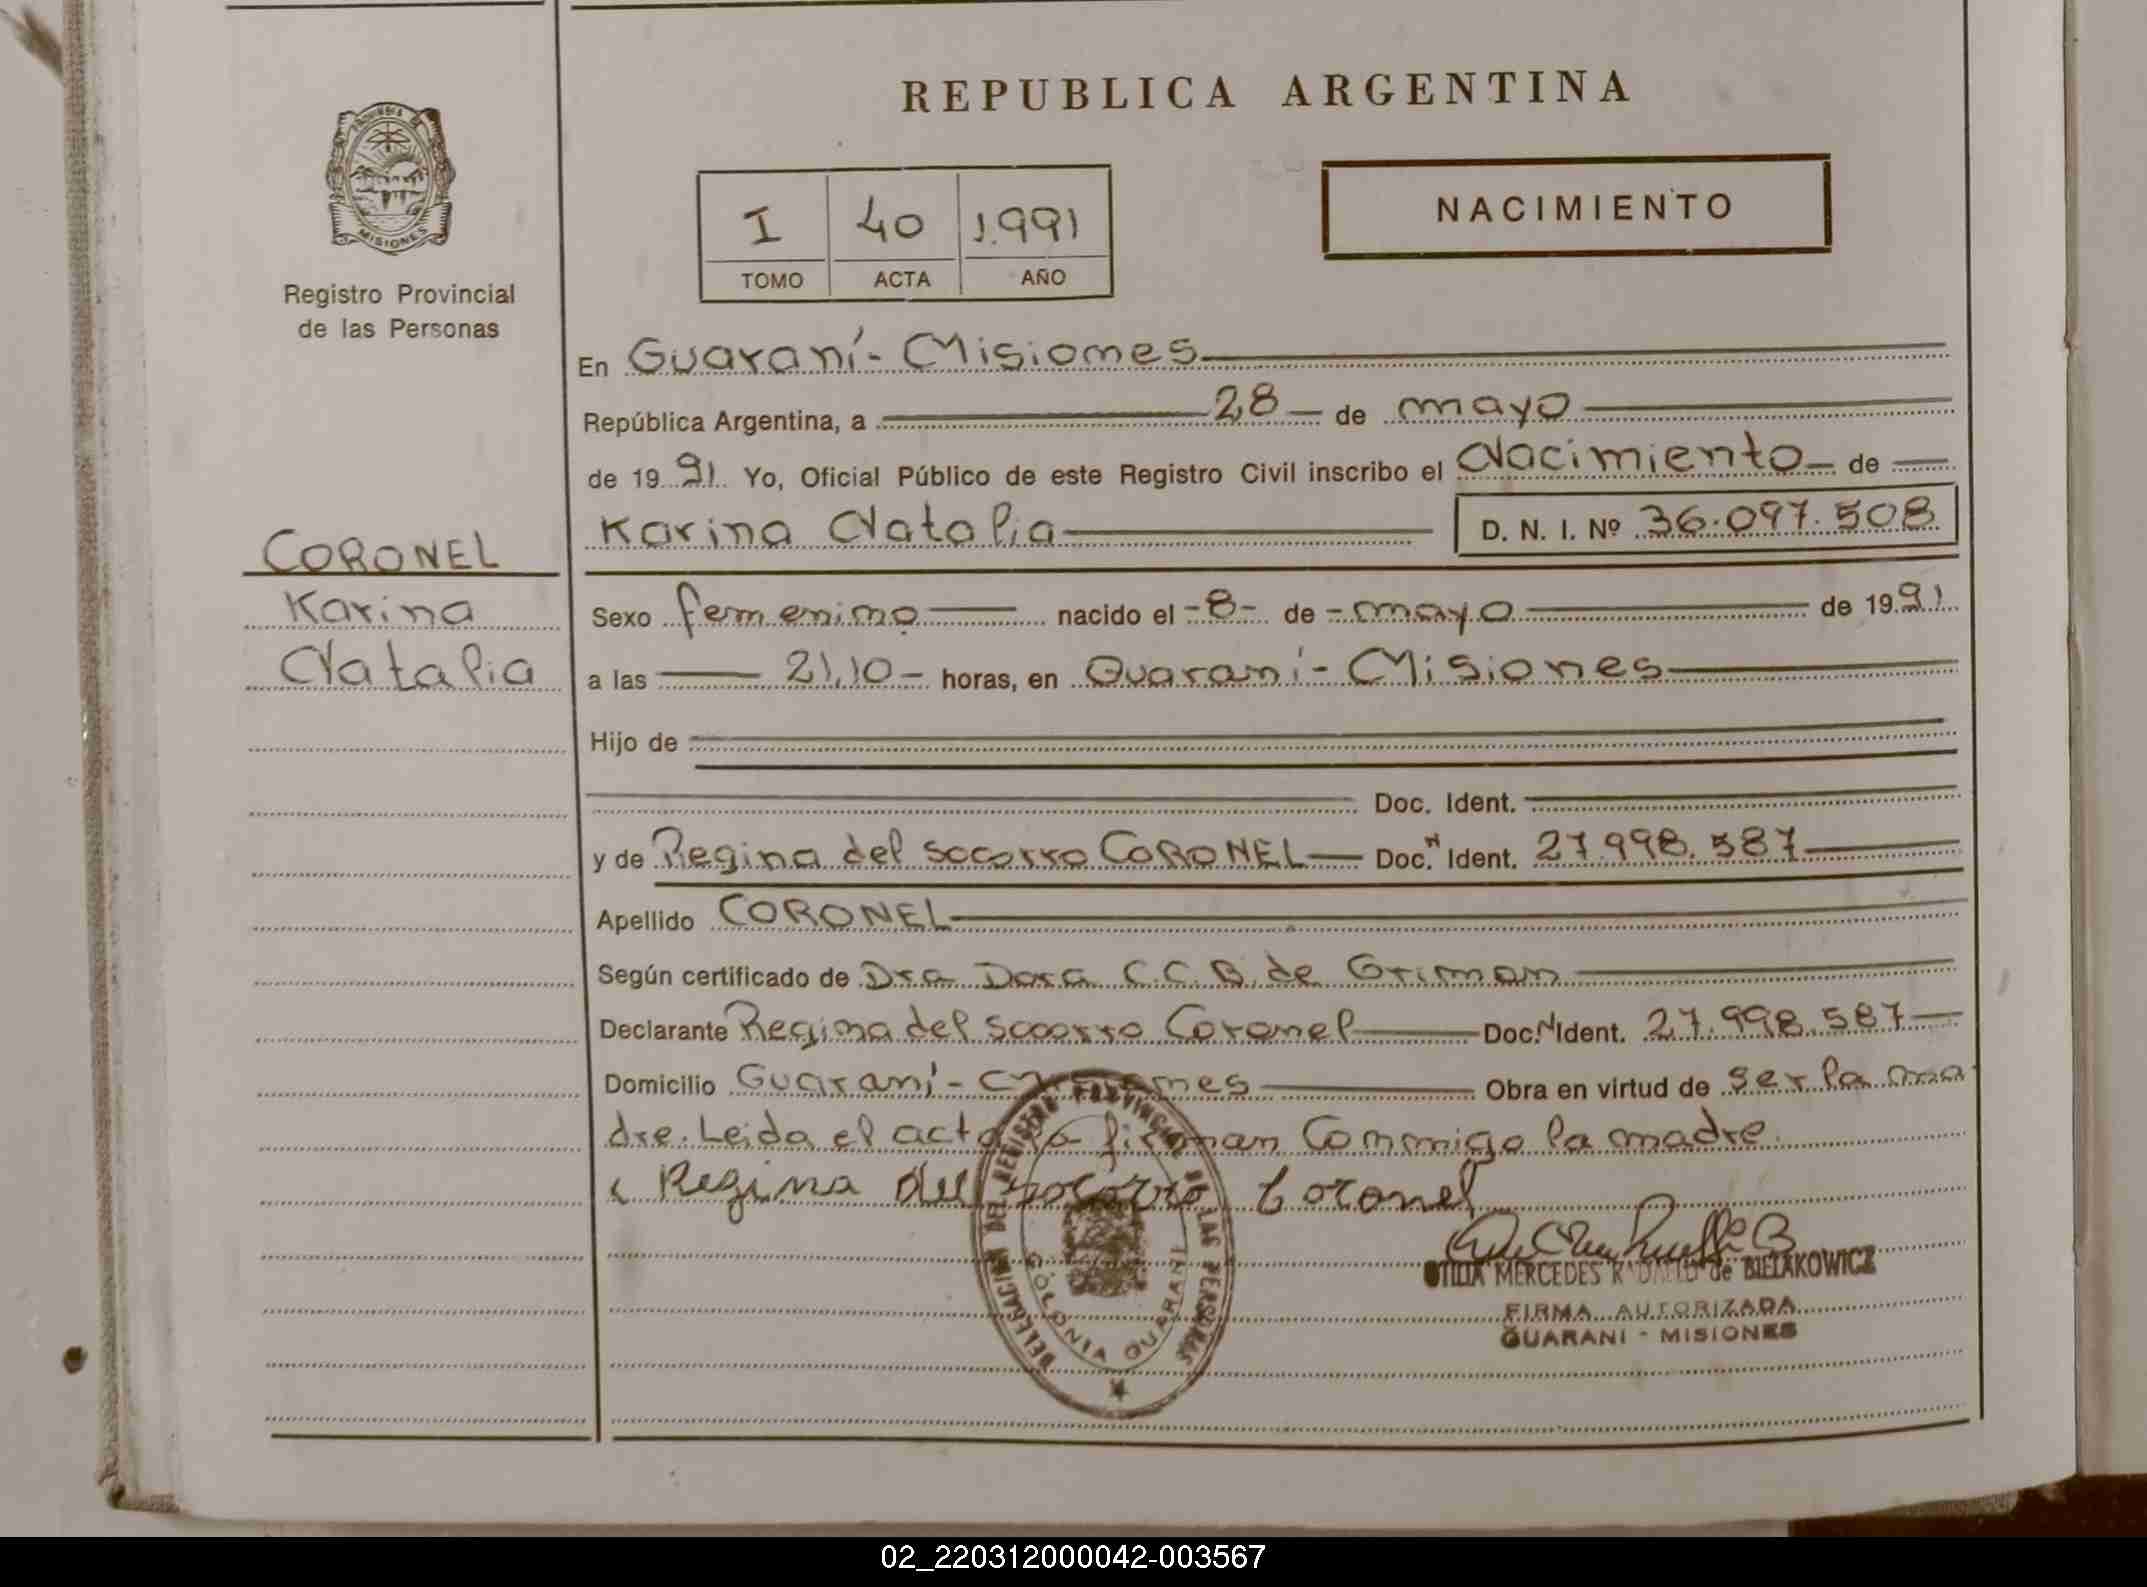 REPUBLICA ARGENTINA
PROVINCIA DE
MISIONES
Registro Provincial
de las Personas
I 40 1.991
TOMO ACTA AÑO
NACIMIENTO
En Guaraní - Misiones
República Argentina, a 28 de mayo
de 19 91 Yo, Oficial Público de este Registro Civil inscribo el Nacimiento de
Karina Natalia D. N. I. Nº 36.097.508
CORONEL
Karina
Natalia
Sexo femenino nacido el - 8 - de - mayo de 19 91
a las 21,10 - horas, en Guaraní - Misiones
Hijo de
Doc. Ident.
y de Regina del socorro CORONEL Doc. N Ident. 27.998.587
Apellido CORONEL
Según certificado de Dra Dora C.C.B. de Griman
Declarante Regina del socorro Coronel Doc. N Ident. 27.998.587
Domicilio Guaraní - Misiones Obra en virtud de ser la ma
dre. Leida el acta la firman Conmigo la madre.
Regina del socorro Coronel
DELEGACION DEL REGISTRO PROVINCIAL DE LAS PERSONAS
COLONIA GUARANI
OTILIA MERCEDES de BIELAKOWICZ
FIRMA AUTORIZADA
GUARANI - MISIONES
02_220312000042-003567